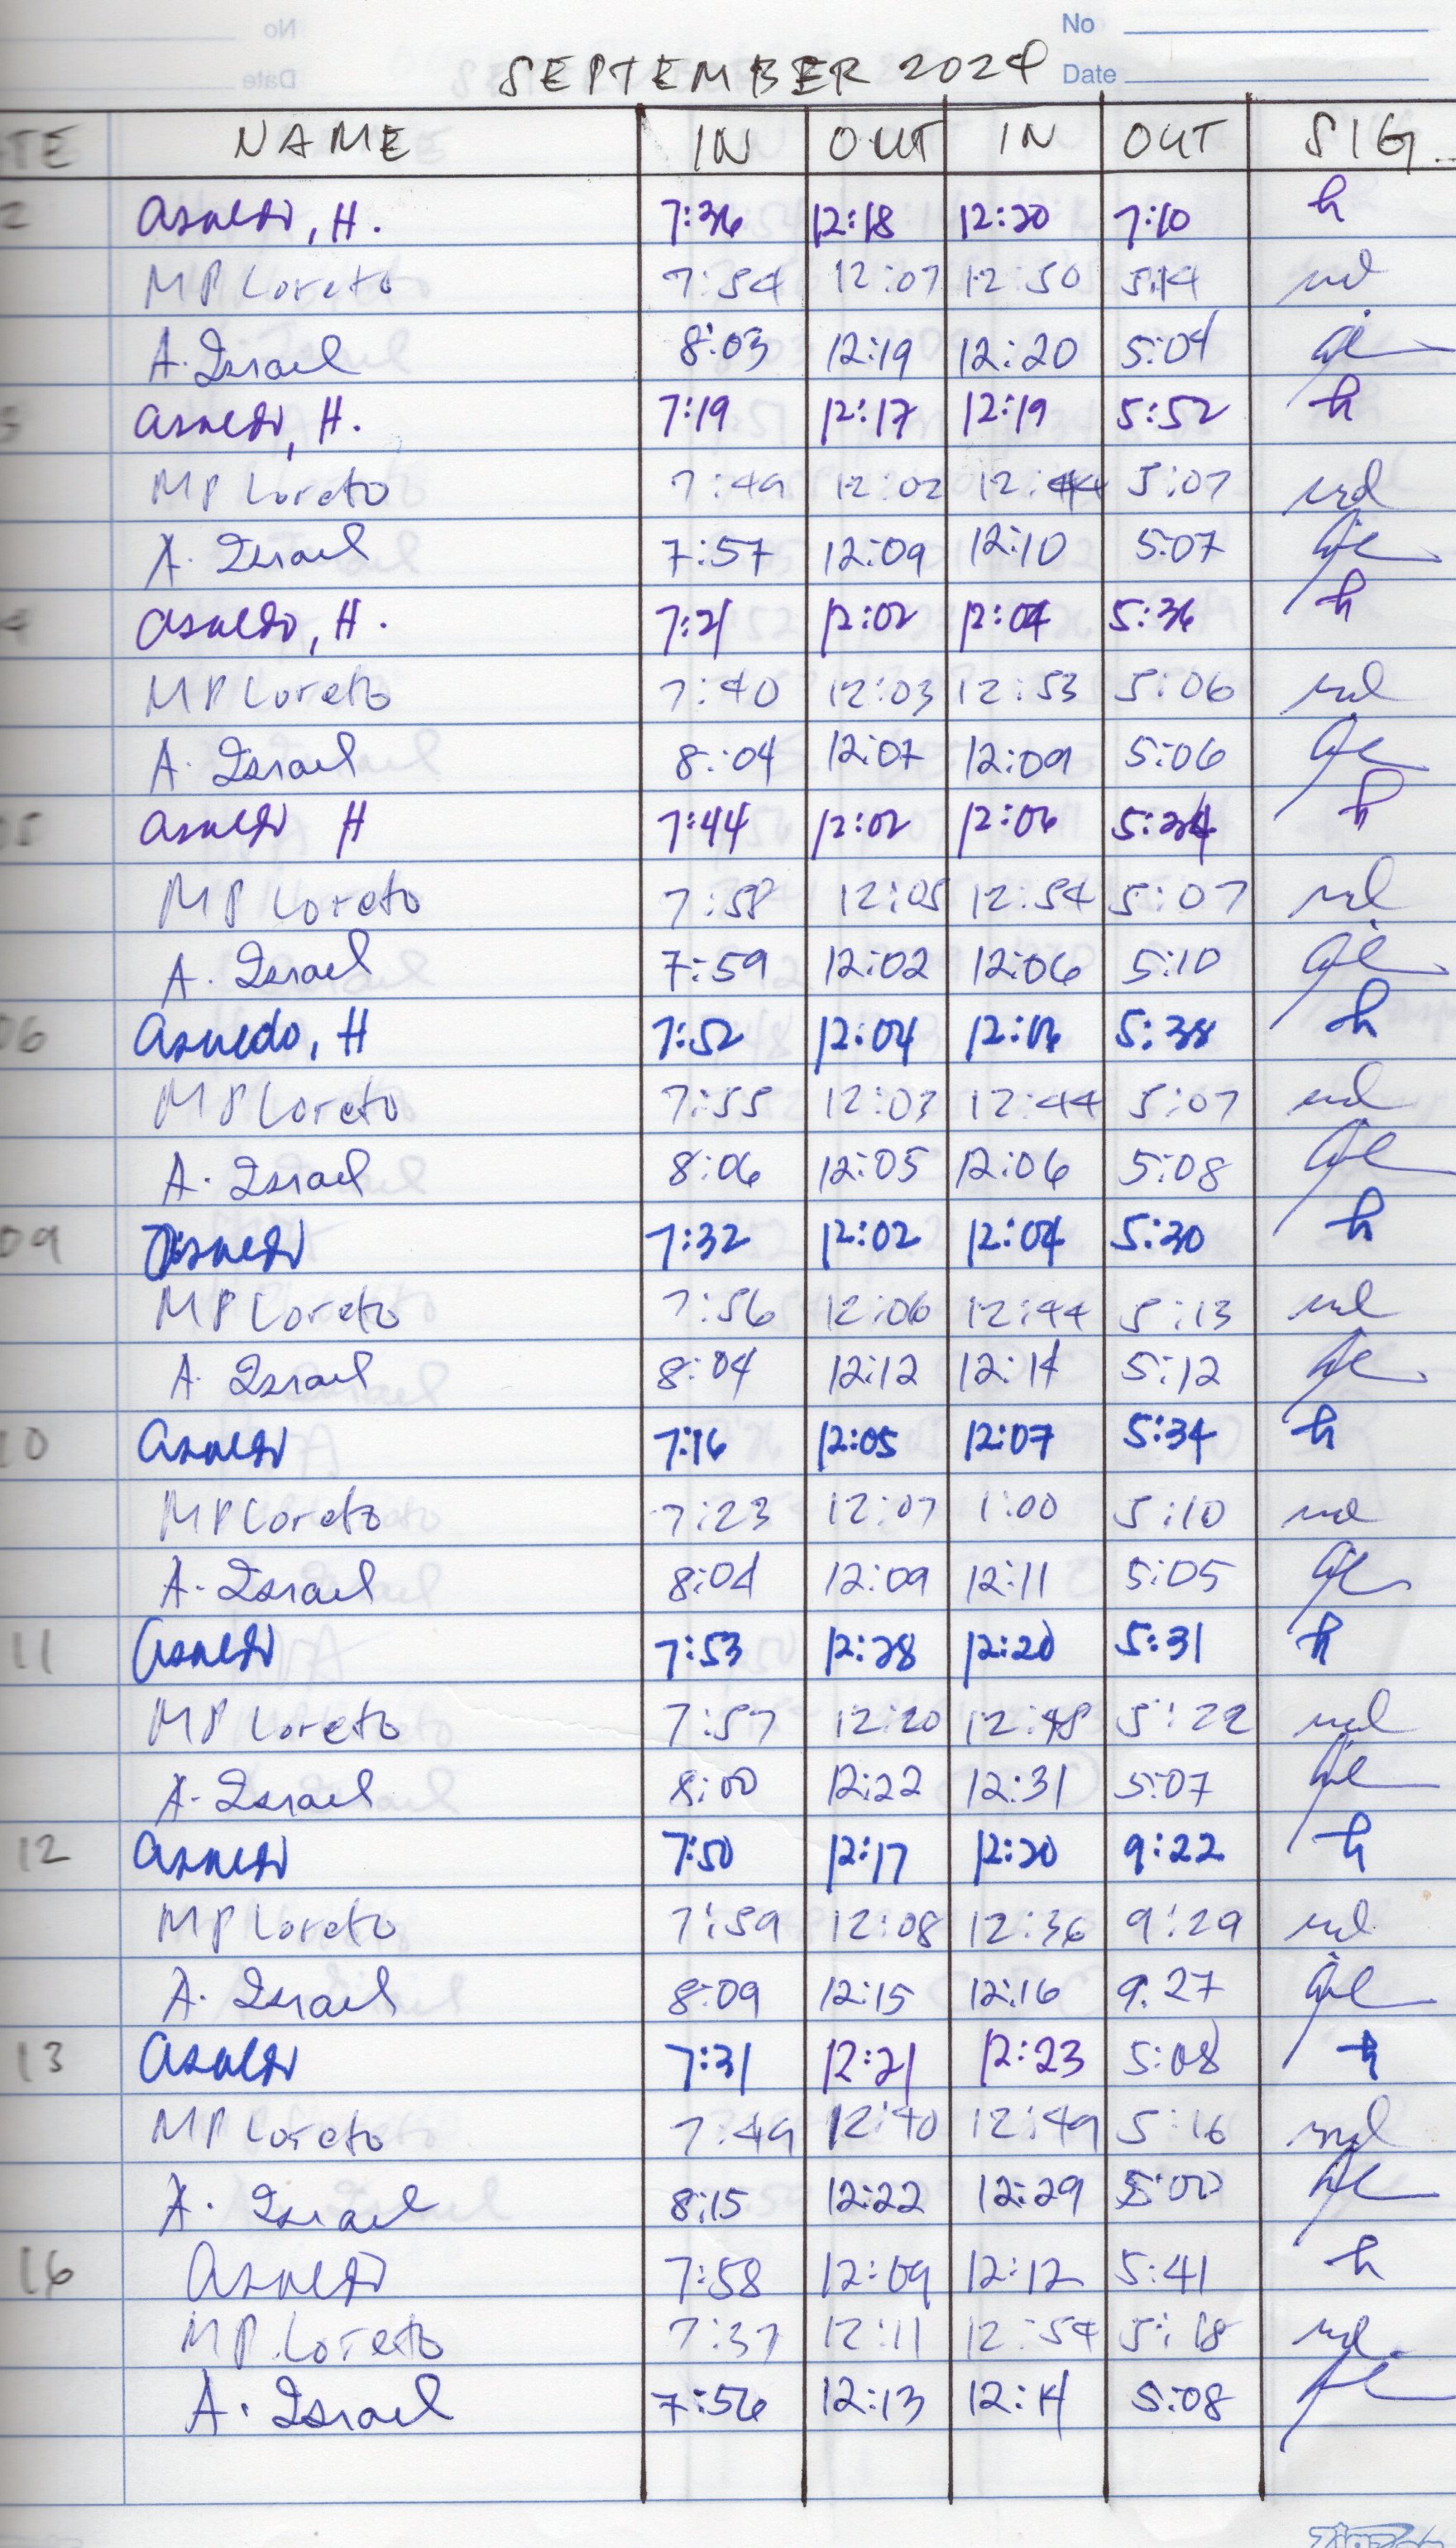 No
Date
SEPTEMBER 2024
TE NAME IN OUT IN OUT SIG.
2 Asuedo, H. 7:36 12:18 12:20 7:10
MP Loreto 7:54 12:07 12:50 5:14
A. Israel 8:03 12:19 12:20 5:04
3 Asuedo, H. 7:19 12:17 12:19 5:52
MP Loreto 7:49 12:02 12:44 5:07
A. Israel 7:57 12:09 12:10 5:07
4 Asuedo, H. 7:21 12:02 12:04 5:36
MP Loreto 7:40 12:03 12:53 5:06
A. Israel 8:04 12:07 12:09 5:06
05 Asuedo H 7:44 12:02 12:06
MP Loreto 7:58 12:05 12:54 5:07
A. Israel 7:59 12:02 12:06 5:10
06 Asuedo, H 7:52 12:04 12:06 5:38
MP Loreto 7:55 12:03 12:44 5:07
A. Israel 8:06 12:05 12:06 5:08
09 Asuedo 7:32 12:02 12:04 5:30
MP Loreto 7:56 12:06 12:44 5:13
A. Israel 8:04 12:12 12:14 5:12
10 Asuedo 7:16 12:05 12:07 5:34
MP Loreto 7:23 12:07 1:00 5:10
A. Israel 8:04 12:09 12:11 5:05
11 Asuedo 7:53 12:28 12:20 5:31
MP Loreto 7:57 12:20 12:48 5:22
A. Israel 8:00 12:22 12:31 5:07
12 Asuedo 7:50 12:17 12:20 9:22
MP Loreto 7:59 12:08 12:36 9:29
A. Israel 8:09 12:15 12:16 9:27
13 Asuedo 7:31 12:21 12:23 5:08
MP Loreto 7:49 12:40 12:49 5:16
A. Israel 8:15 12:22 12:29 5:00
16 Asuedo 7:58 12:09 12:12 5:41
MP. Loreto 7:37 12:11 12:54 5:18
A. Israel 7:56 12:13 12:14 5:08